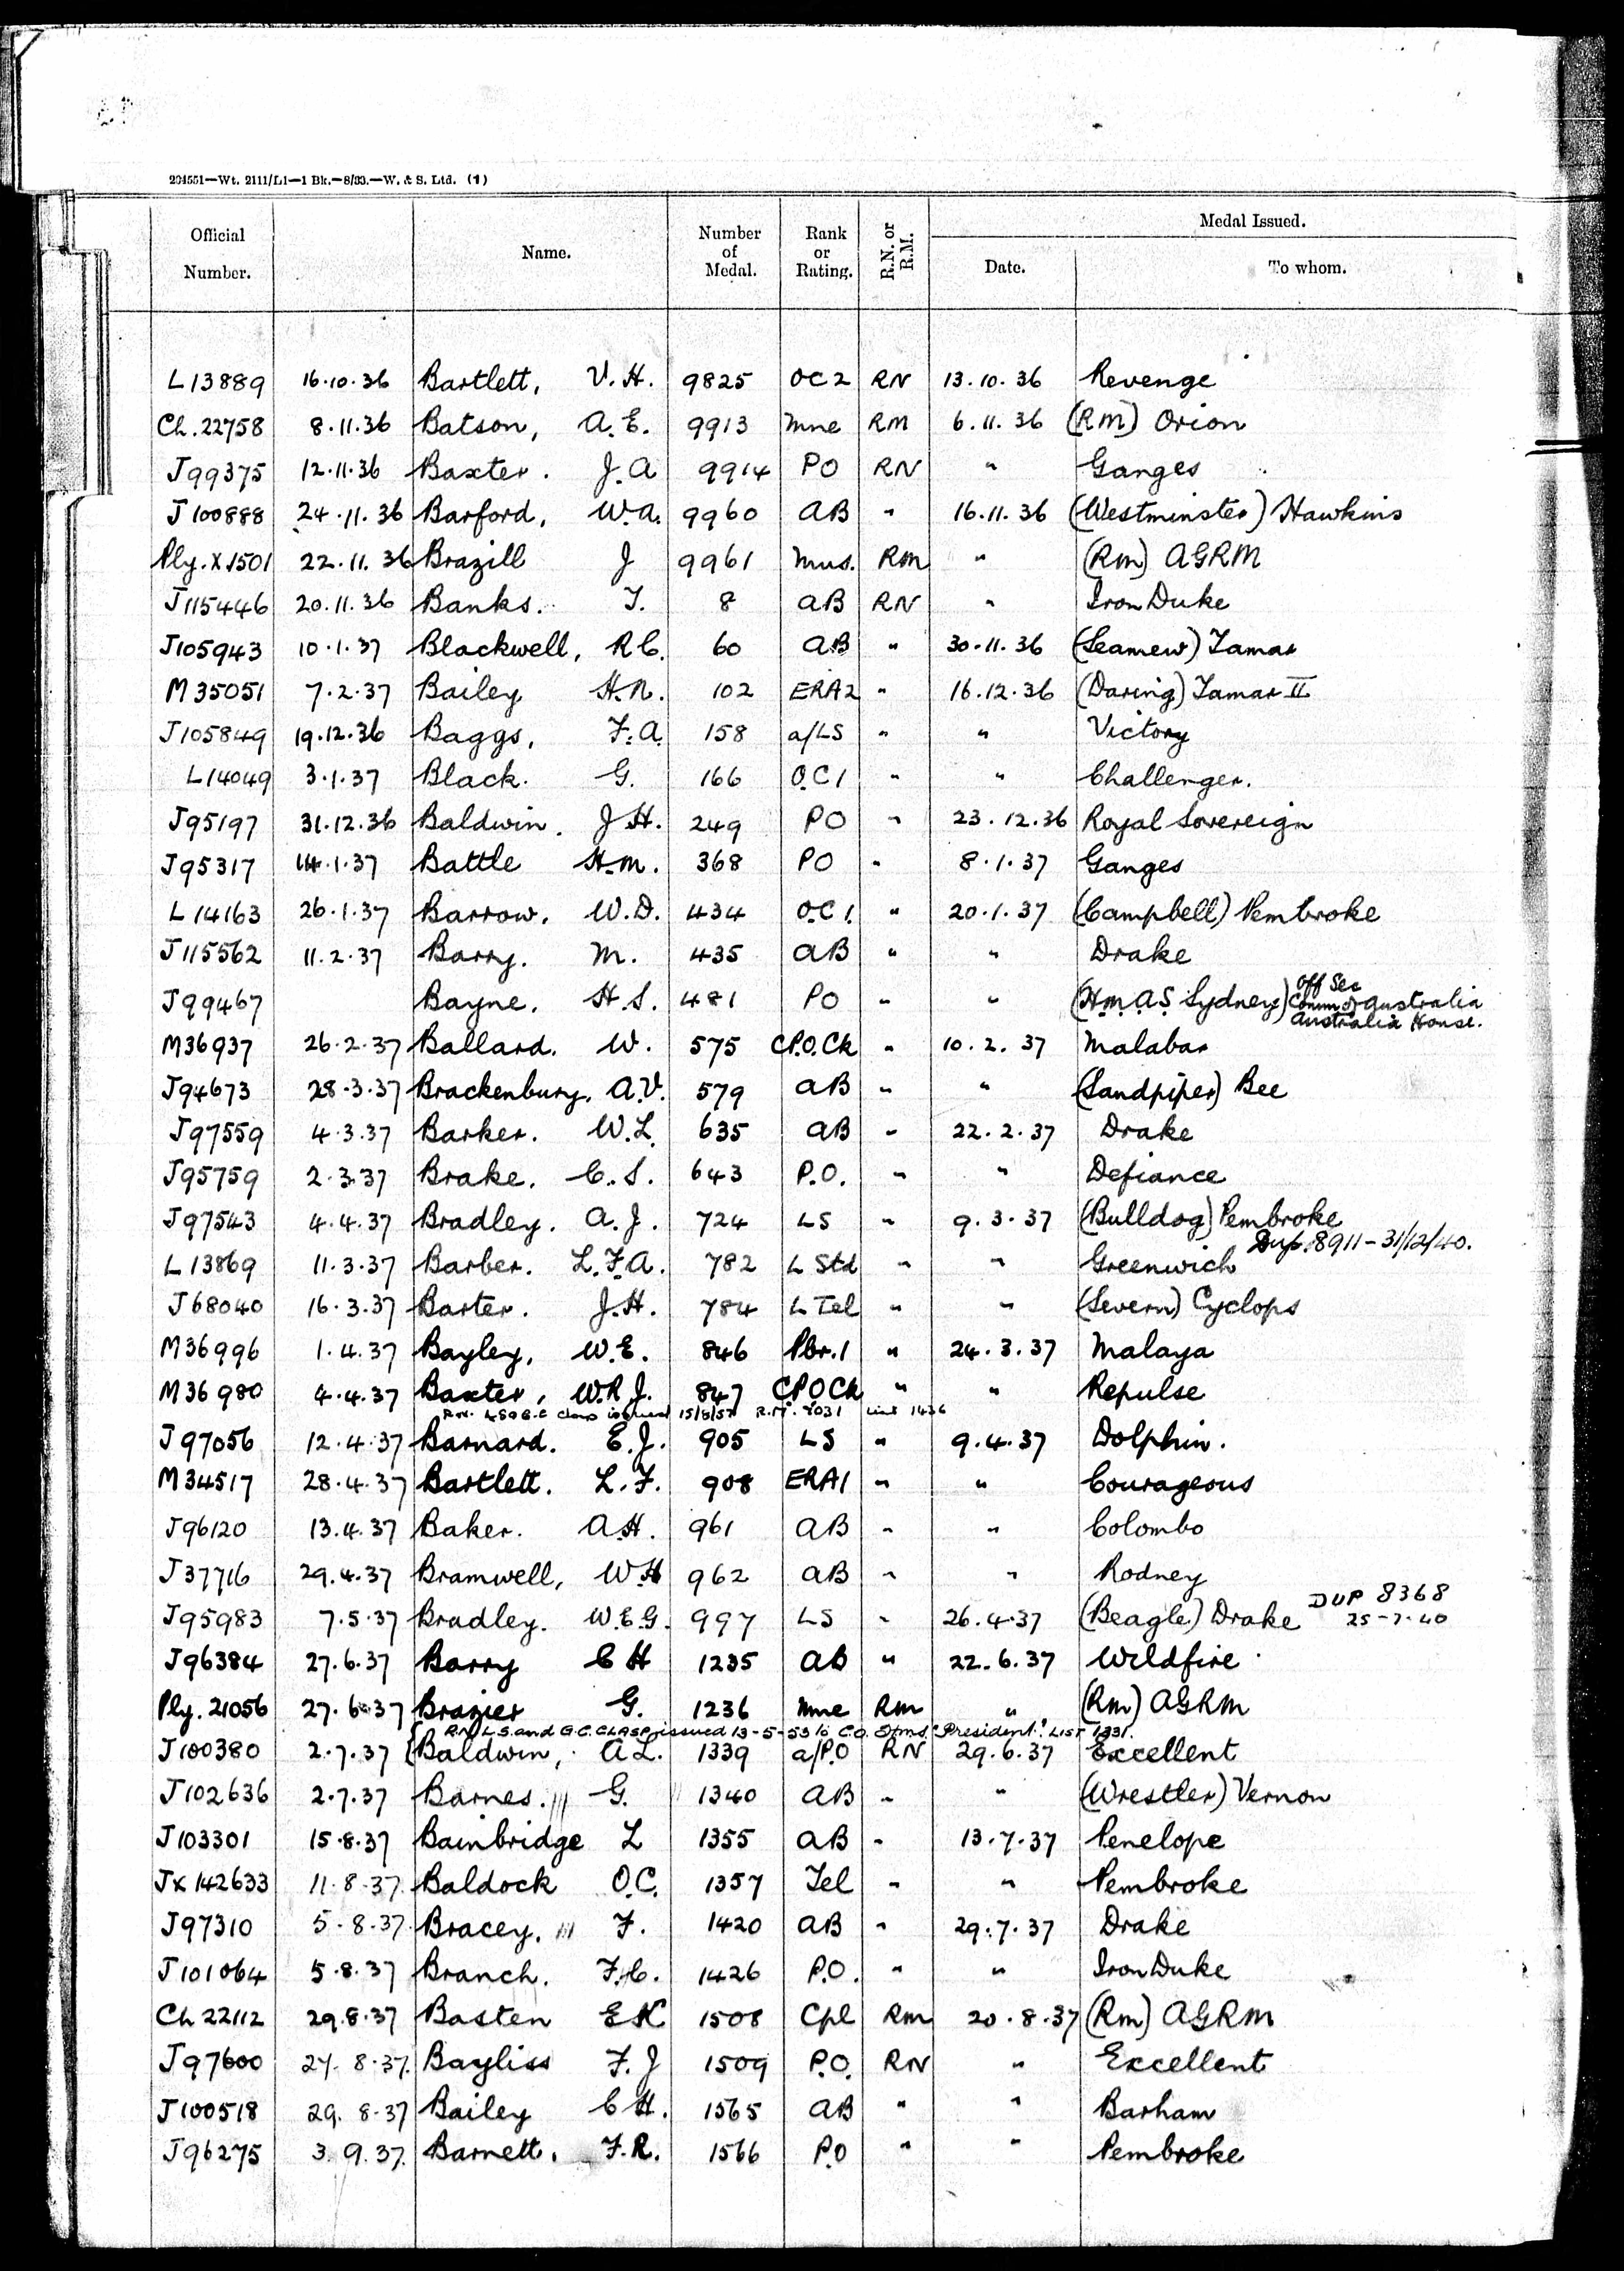 204551—Wt. 2111/L1—1 Bk.—8/33.—W. & S. Ltd. (1)
Official Number. Name. Number of Medal. Rank or Rating. R.N. or R.M. Medal Issued. Date. To whom.
L13889 16.10.36 Bartlett, V.H. 9825 OC2 RN 13.10.36 Revenge
Ch.22758 8.11.36 Batson, A.E. 9913 Mne RM 6.11.36 (RM) Orion
J99375 12.11.36 Baxter. J.A 9914 PO RN " Ganges
J100888 24.11.36 Barford, W.A. 9960 AB " 16.11.36 (Westminster) Hawkins
Ply.X1501 22.11.36 Brazill J 9961 Mus. RM " (RM) AGRM
J115446 20.11.36 Banks. T. 8 AB RN " Iron Duke
J105943 10.1.37 Blackwell, R.C. 60 AB " 30.11.36 (Seamew) Tamar
M35051 7.2.37 Bailey H.N. 102 ERA2 " 16.12.36 (Daring) Tamar II
J105849 19.12.36 Baggs, F.A. 158 a/LS " " Victory
L14049 3.1.37 Black. G. 166 O.C1 " " Challenger.
J95197 31.12.36 Baldwin. J.H. 249 PO " 23.12.36 Royal Sovereign
J95317 14.1.37 Battle H.M. 368 PO " 8.1.37 Ganges
L14163 26.1.37 Barrow. W.D. 434 O.C1. " 20.1.37 (Campbell) Pembroke
J115562 11.2.37 Barry. M. 435 AB " " Drake
J99467 Bayne. H.S. 481 PO " " (H.M.A.S. Sydney) Off Sec Comm of Australia Australia House.
M36937 26.2.37 Ballard. W. 575 CP.O.Ck " 10.2.37 Malabar
J94673 28.3.37 Brackenbury. A.V. 579 AB " " (Sandpiper) Bee
J97559 4.3.37 Barker. W.L. 635 AB " 22.2.37 Drake
J95759 2.3.37 Brake. C.S. 643 P.O. " " Defiance
J97543 4.4.37 Bradley. A.J. 724 LS " 9.3.37 (Bulldog) Pembroke
Dup. 8911-31/12/40.
L13869 11.3.37 Barber. L.F.A. 782 L Std " " Greenwich
J68040 16.3.37 Barter. J.H. 784 L Tel " " (Severn) Cyclops
M36996 1.4.37 Bayley, W.E. 846 Pbr.1 " 24.3.37 Malaya
M36980 4.4.37 Baxter, W.R.J. 847 CPOCk " " Repulse
R.N. LS&G.C clasp issued 15/8/52 R.N. 2031 List 1436
J97056 12.4.37 Barnard. E.J. 905 LS " 9.4.37 Dolphin.
M34517 28.4.37 Bartlett. L.F. 908 ERA1 " " Courageous
J96120 13.4.37 Baker. A.H. 961 AB " " Colombo
J37716 29.4.37 Bramwell, W.H 962 AB " " Rodney
J95983 7.5.37 Bradley. W.E.G. 997 LS " 26.4.37 (Beagle) Drake DUP 8368 25-7-40
J96384 27.6.37 Barry C H 1235 AB " 22.6.37 Wildfire
Ply.21056 27.6.37 Brazier G. 1236 Mne RM " (RM) AGRM
R.N L.S. and G.C. CLASP issued 13-5-53 to C.O. H.M.S. "President". LIST 1331.
J100380 2.7.37 Baldwin, A L. 1339 a/P.O RN 29.6.37 Excellent
J102636 2.7.37 Barnes. G. 1340 AB " " (Wrestler) Vernon
J103301 15.8.37 Bainbridge L 1355 AB " 13.7.37 Penelope
Jx142633 11.8.37 Baldock O.C. 1357 Tel " " Pembroke
J97310 5.8.37 Bracey. F. 1420 AB " 29.7.37 Drake
J101064 5.8.37 Branch. F.C. 1426 P.O. " " Iron Duke
Ch 22112 29.8.37 Basten E K 1508 Cpl RM 20.8.37 (RM) AGRM
J97600 27.8.37. Bayliss F.J 1509 P.O. RN " Excellent
J100518 29.8.37 Bailey C H. 1565 AB " " Barham
J96275 3.9.37. Barnett. F.R. 1566 P.O " " Pembroke